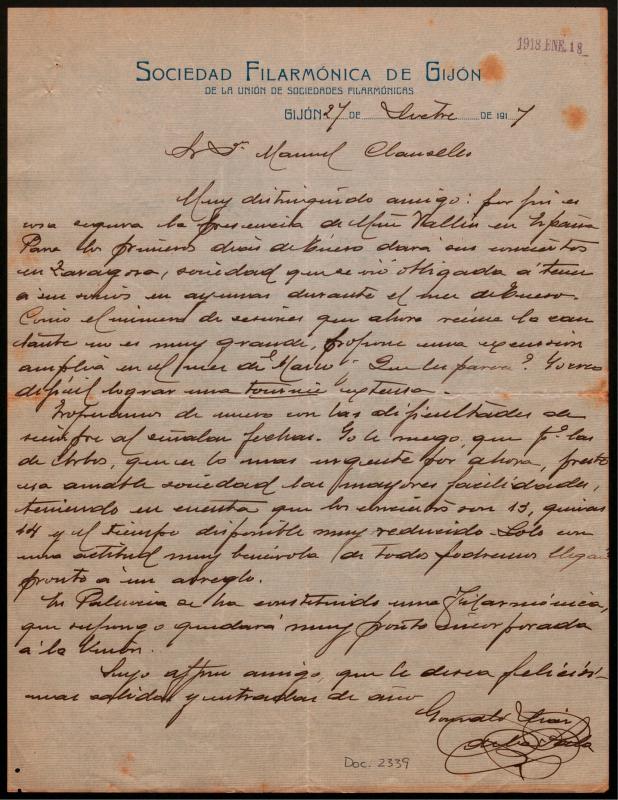 1918 ENE. 18
SOCIEDAD FILARMÓNICA DE GIJÓN
DE LA UNIÓN DE SOCIEDADES FILARMÓNICAS
GIJÓN 27 DE DE 1917
Sr Dn Manuel Clausells
Muy distinguido amigo: por fin es
cosa segura la presencia de Mme Vallin en España
Para los primeros dias de Enero dará sus conciertos
en Zaragoza, sociedad que se vió obligada á tener
á sus socios en ayunas durante el mes de Enero.
Como el número de sesiones que ahora reune la can
tante no es muy grande, propone una excursión
amplia en el mes de Marzo. Que les parece?
dificil lograr una tournée extensa.
Tropezamos de nuevo con las dificultades de
siempre al señalar fechas. Yo le ruego, que pa las
de Arbos, que es lo mas urgente por ahora, preste
esa amable sociedad las mayores facilidades,
teniendo en cuenta que los conciertos son 13, quizas
14 y el tiempo disponible muy reducido. Solo con
una actitud muy benévola de todos podremos llegar
pronto á un arreglo.
En Palencia se ha constituido una Filarmónica,
que supongo quedará muy pronto incorporada
á la Unión.
Suyo affmo amigo, que le desea felicisi-
mas salidas y entradas de año
Gonzalo
Doc. 2339